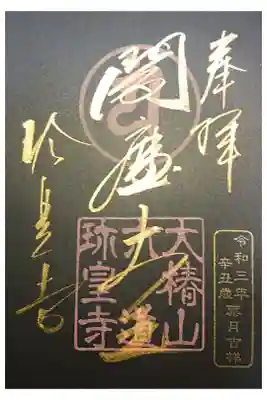 奉拝
閻魔大王
大椿山
六道
珎皇寺
珎皇寺
令和三年 月吉祥
辛丑歳